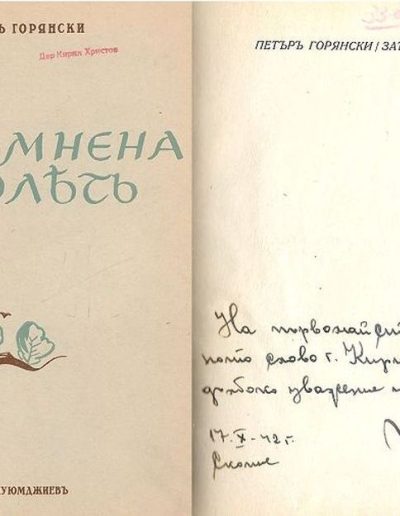 Ъ ГОРЯНСКИ
Дар Кирил Христов
МНЕНА
ОЛѢТЬ
УЮМДЖИЕВЪ
ПЕТЪРЪ ГОРЯНСКИ / ЗАТ
На първомайсй
г. Кири
дълбоко уважение
17.X-42 г.
Скопие